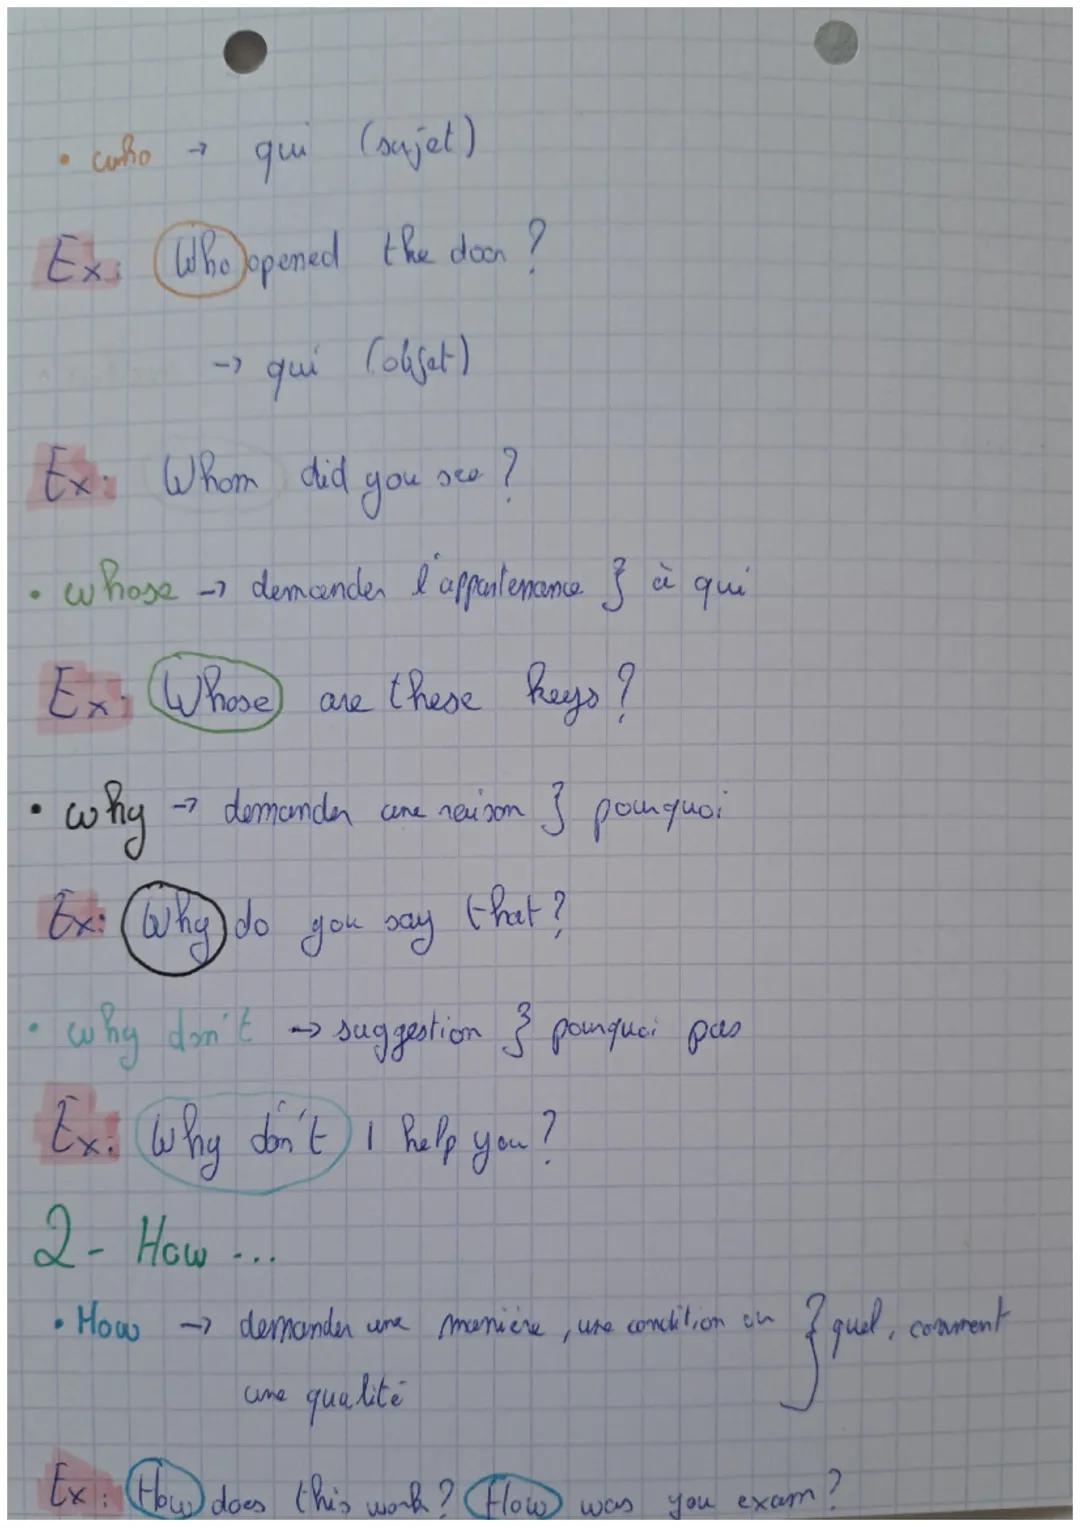 • who → qui (sujet)
Ex: Who opened the door ?
→ qui (objet)
Ex: Whom did you see ?
• whose → demander l'appartenance } à qui
Ex: Whose are these keys ?
• why → demander une raison } pourquoi
Ex: Why do you say that ?
• why don't → suggestion } pourquoi pas
Ex: Why don't I help you ?
2- How ...
• How → demander une manière, une condition ou } quel, comment
une qualité
Ex: How does this work ? How was you exam ?